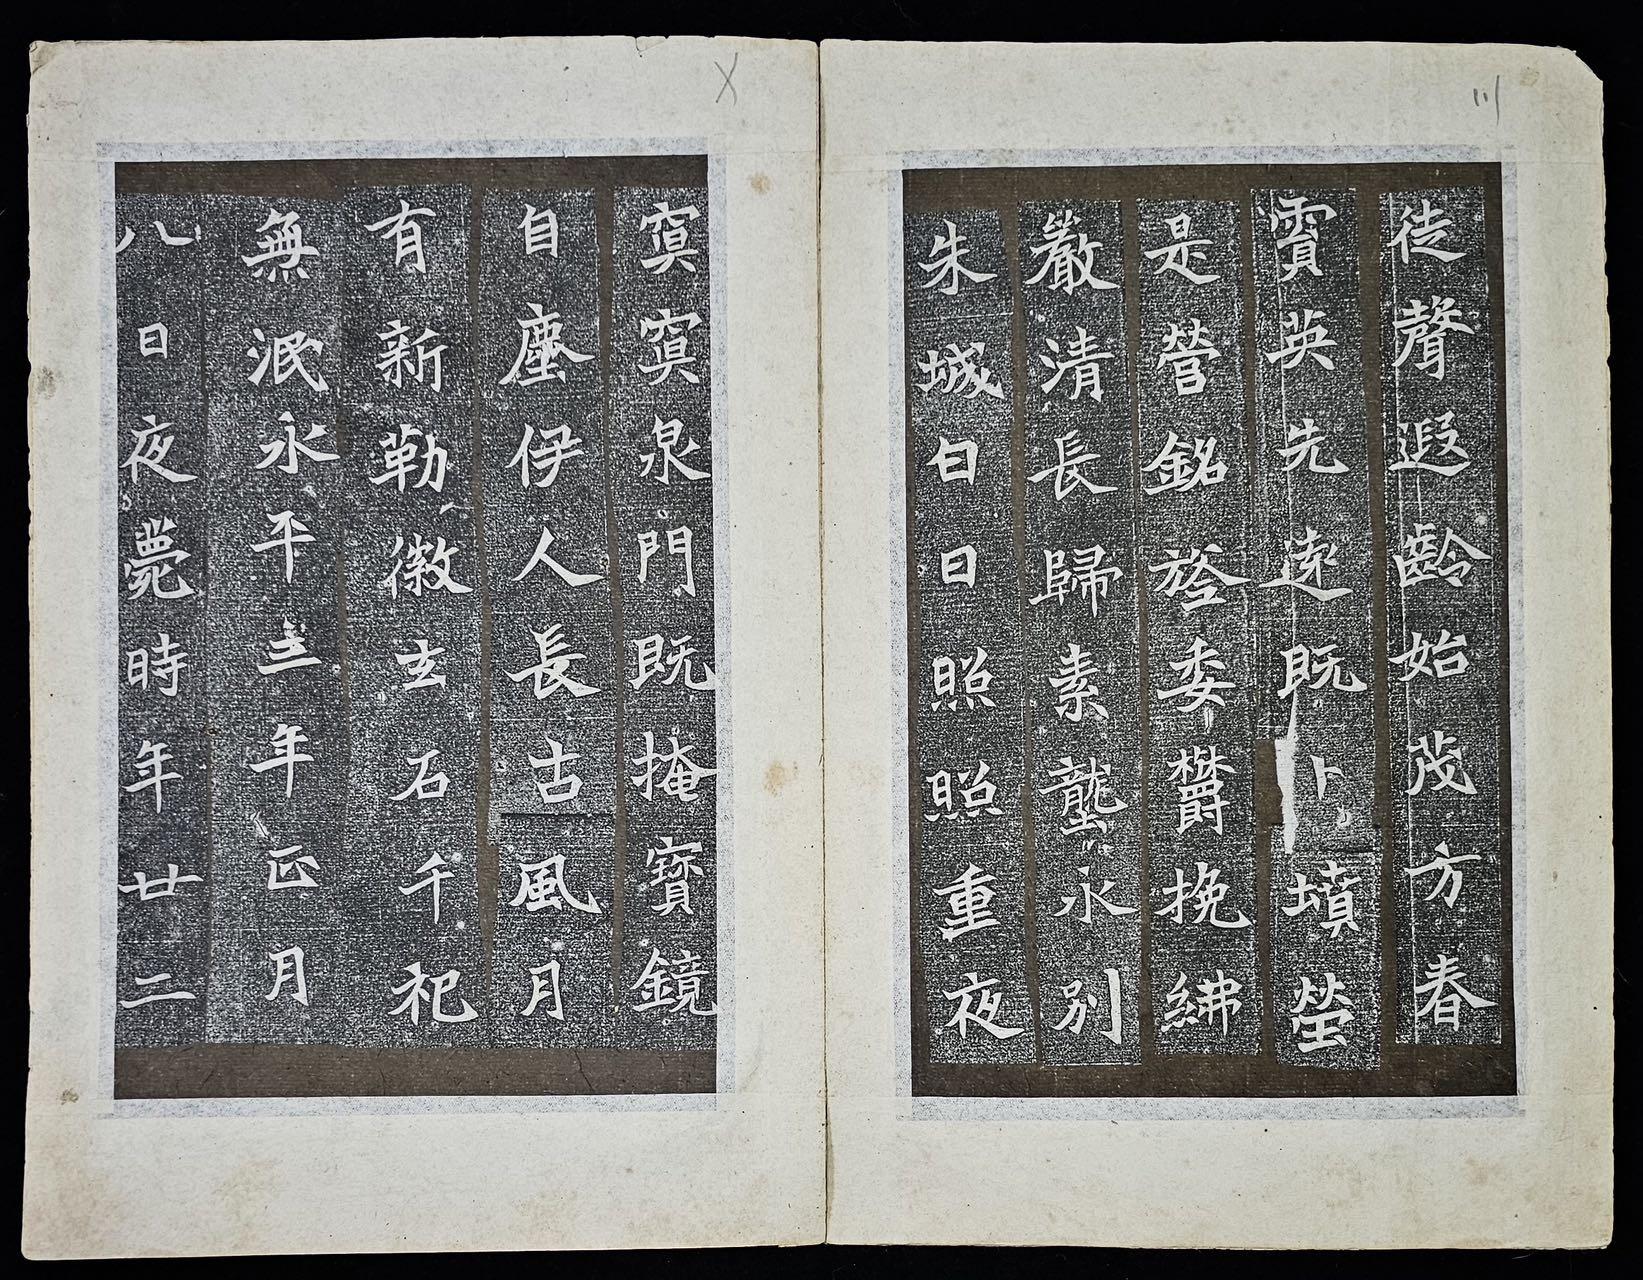 〣
徒聲遐齡始茂方春
霣英先遠既卜墳塋
是營銘旍委欝挽紼
嚴清長歸素壟永別
朱城白日照照重夜
〤
㝠㝠泉門既掩寶鏡
自塵伊人長古風月
有新勒徽玄石千祀
無泯永平三年正月
八日夜薨時年廿二